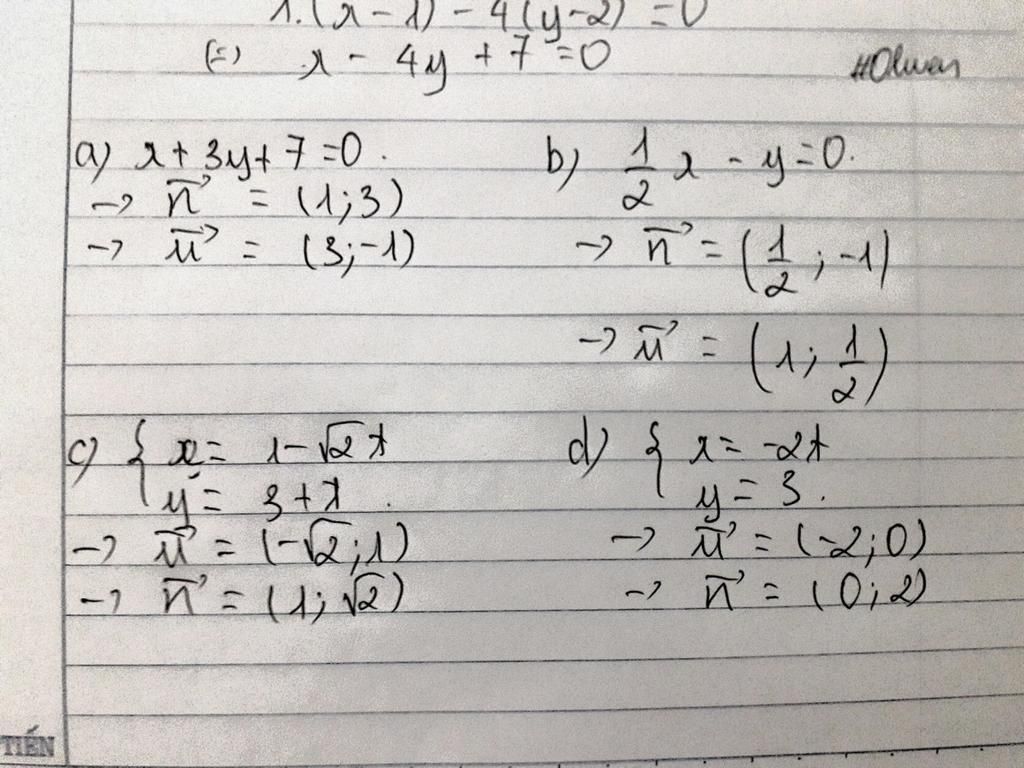 1.(x-1) - 4(y-2) = 0
(=) x - 4y + 7 = 0
a) x + 3y + 7 = 0.
→ n⃗ = (1; 3)
→ u⃗ = (3; -1)
b) 1/2 x - y = 0.
→ n⃗ = (1/2; -1)
→ u⃗ = (1; 1/2)
c) { x = 1 - √2 t
y = 3 + t.
→ u⃗ = (-√2; 1)
→ n⃗ = (1; √2)
d) { x = -2t
y = 3.
→ u⃗ = (-2; 0)
→ n⃗ = (0; 2)
TIẾN